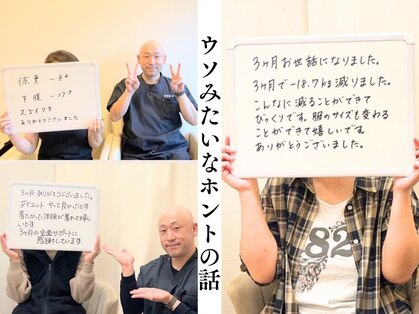 体重 －8.2
下腹 －17.8
スゴイです
ありがとうございました
ウソみたいなホントの話
3ヶ月お世話になりました。
3ヶ月で－18.7kg減りました。
こんなに減ることができて
びっくりです。服のサイズも変わる
ことができて嬉しいです。
ありがとうございました。
3ヶ月ありがとうございました。
ダイエット やって良かったです
着たかった洋服が着れて嬉し
いです
3ヶ月の全面サポートに
感謝しています
82